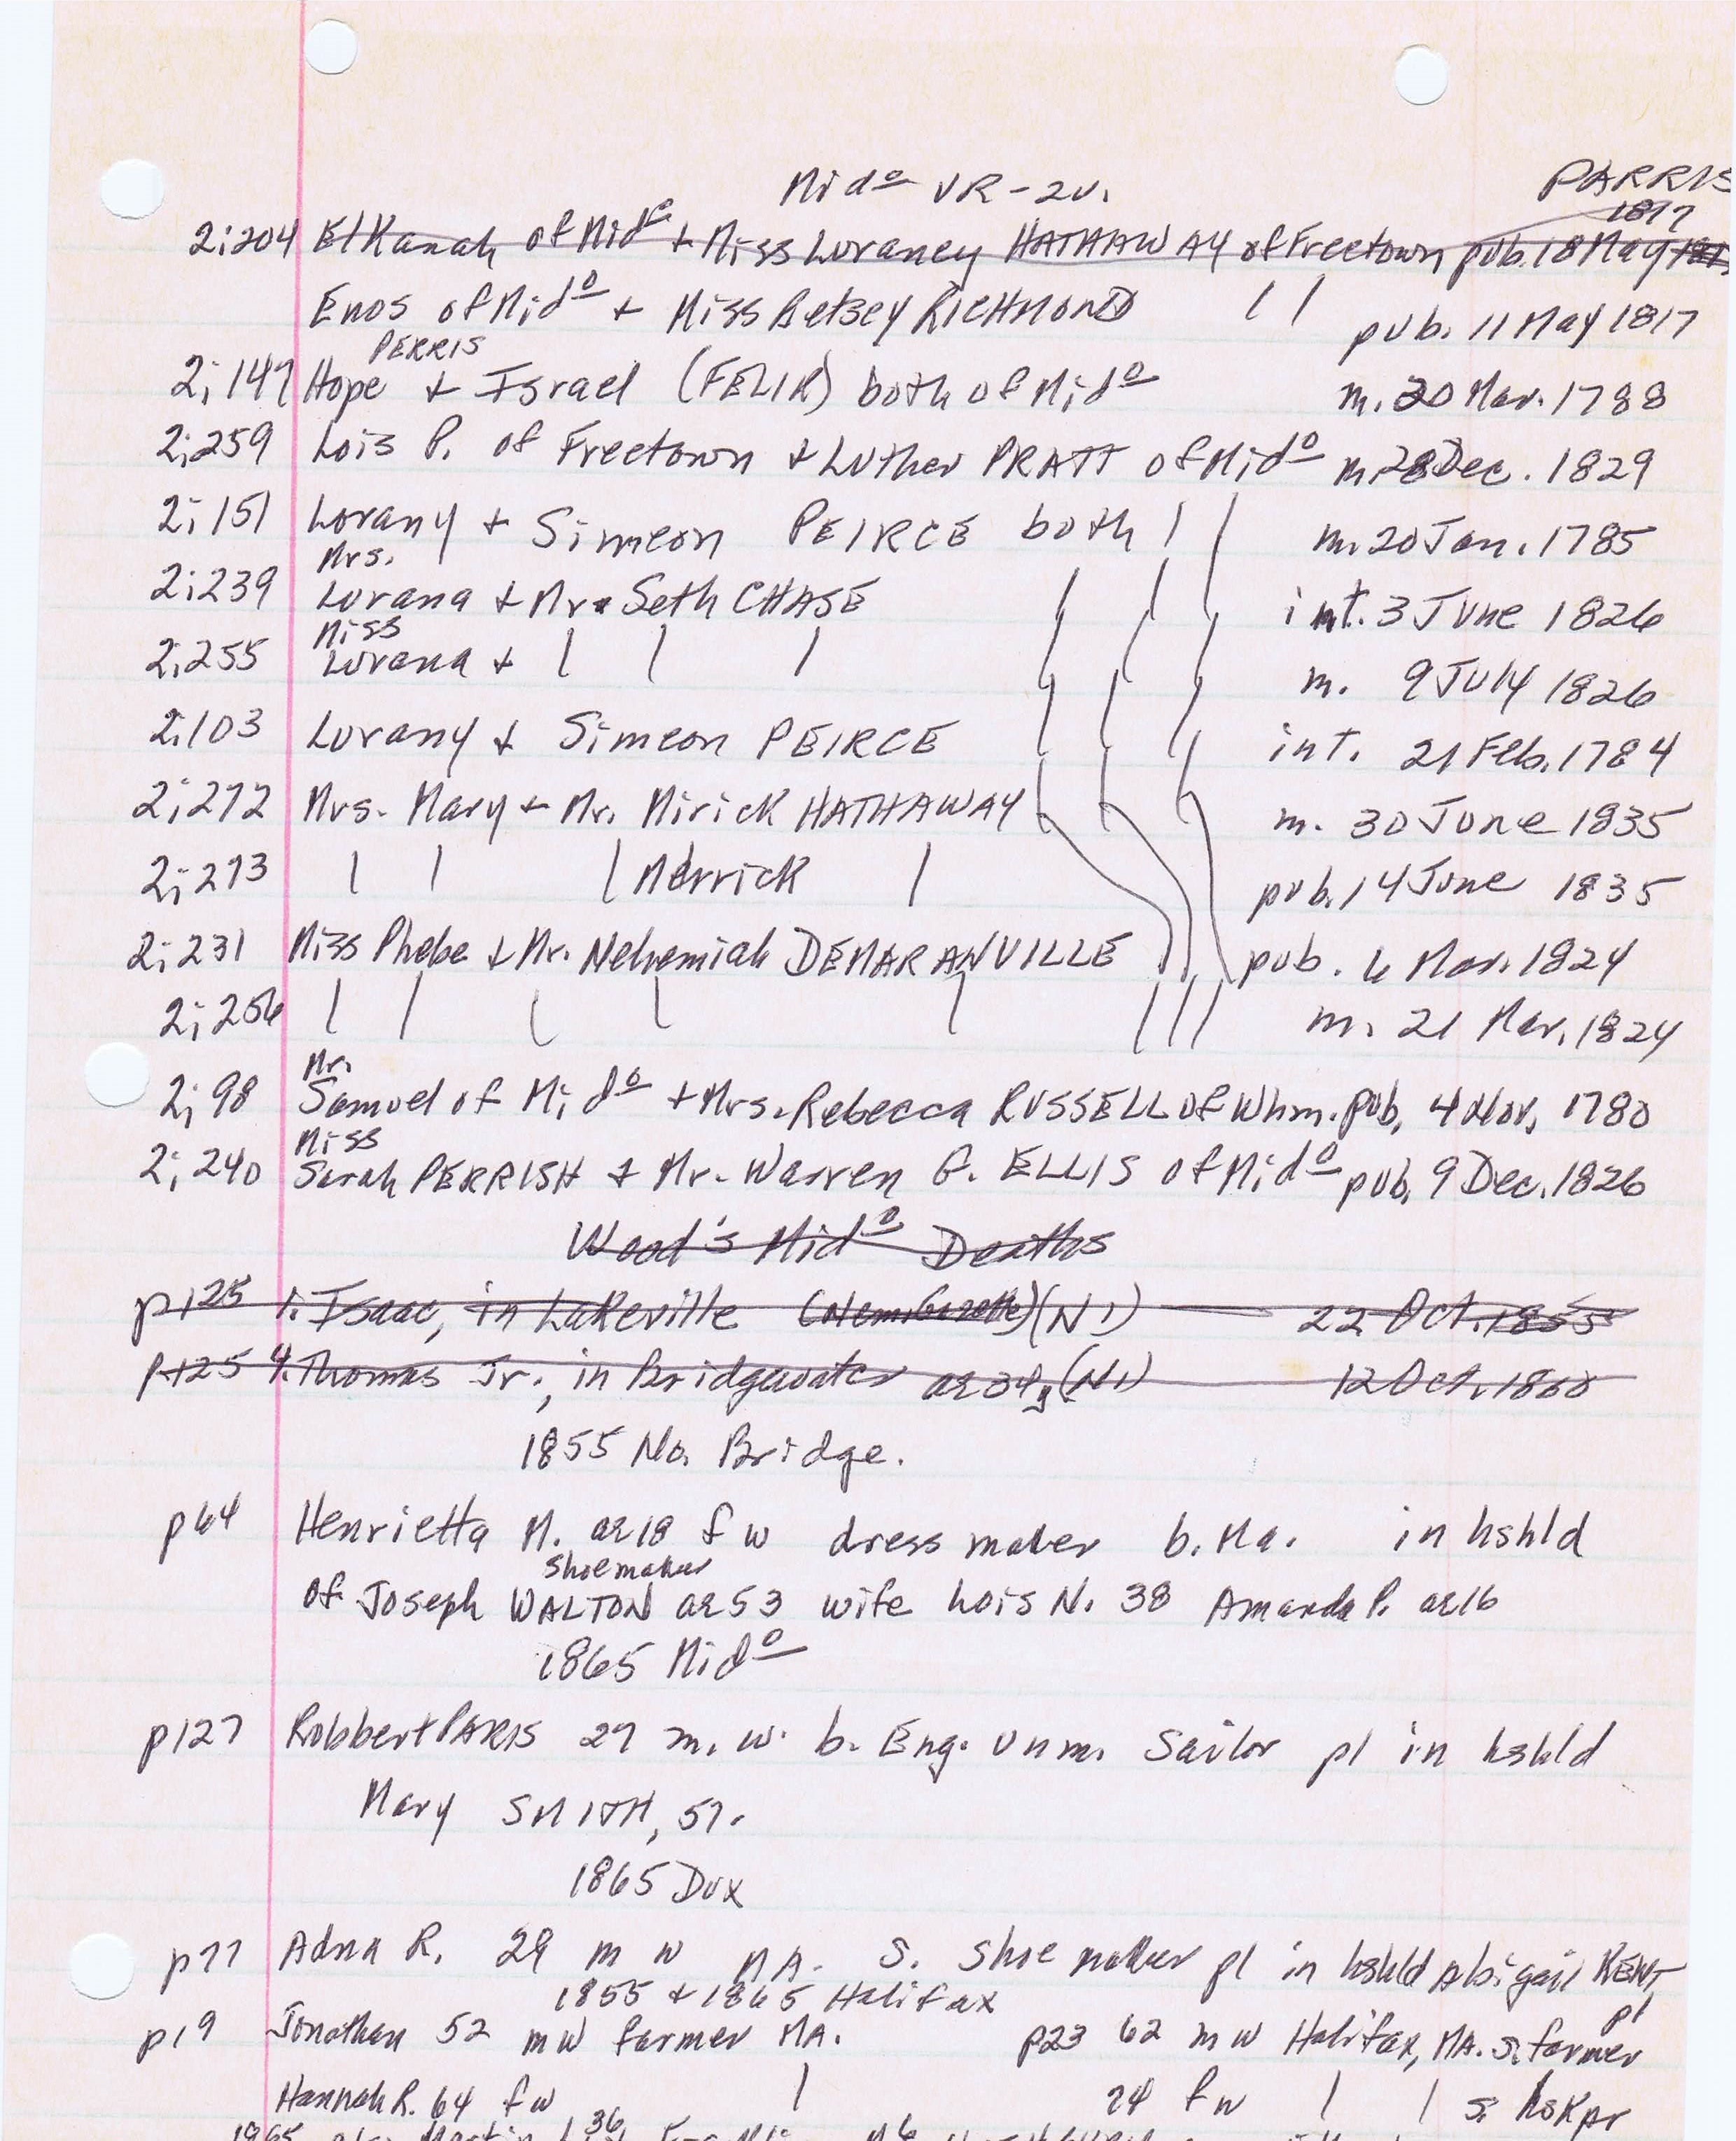 Mido VR-2v. PARRIS
1817
2;204 Elkanah of Mido + Miss Loraney HATHAWAY of Freetown pub. 18 May
Enos of Mido + Miss Betsey RICHMOND | | pub. 11 May 1817
PERRIS
2;147 Hope + Israel (FELIX) both of Mido m. 20 Mar. 1788
2;259 Lois P. of Freetown + Luther PRATT of Mido m. 28 Dec. 1829
2;151 Lorany + Simeon PEIRCE both | | m. 20 Jan. 1785
Mrs.
2;239 Lurana + Mr. Seth CHASE | | | int. 3 June 1826
Miss
2;255 Lurana + | | | | | | m. 9 July 1826
2;103 Lurany + Simeon PEIRCE | | | int. 21 Feb. 1784
2;272 Mrs. Mary + Mr. Mirick HATHAWAY | | | m. 30 June 1835
2;273 | | | Merrick | pub. 14 June 1835
2;231 Miss Phebe + Mr. Nehemiah DEMARANVILLE pub. 6 Mar. 1824
2;256 | | | | | | | | m. 21 Mar. 1824
Mr.
2;98 Samuel of Mido + Mrs. Rebecca RUSSELL of Whm. pub. 4 Nov. 1780
Miss
2;240 Sarah PERRISH + Mr. Warren G. ELLIS of Mido pub. 9 Dec. 1826
Wood's Mido Deaths
p125 1. Isaac, in Lakeville (Nem. Gazette) (N1) 22 Oct. 1855
p125 4. Thomas Jr., in Bridgewater ae 34y (N1) 12 Oct. 1860
1855 No. Bridge.
p64 Henrietta M. ae 18 f w dress maker b. Ma. in hshld
shoemaker
of Joseph WALTON ae 53 wife Lois N. 38 Amanda P. ae 16
1865 Mido
p127 Robbert PARIS 29 m. w. b. Eng. unm. Sailor pl in hshld
Mary SMITH, 57.
1865 Dux
p77 Adna R. 29 m w MA. S. Shoe maker pl in hshld Abigail KENT,
1855 + 1865 Halifax pl
p19 Jonathan 52 m w farmer MA. p23 62 m w Halifax, MA. S. farmer
Hannah R. 64 f w | 74 f w | | S. hskpr
36
1865